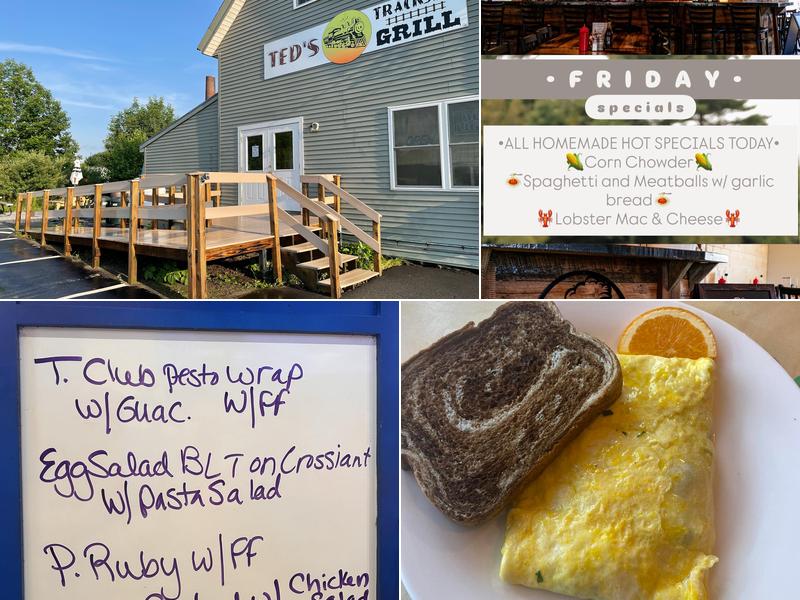 TED'S
TRACKSIDE
GRILL
• FRIDAY •
specials
•ALL HOMEMADE HOT SPECIALS TODAY•
🌽Corn Chowder🌽
🍝Spaghetti and Meatballs w/ garlic
bread🍝
🦞Lobster Mac & Cheese🦞
T. Club pesto wrap
w/Guac. w/ff
Egg Salad BLT on Crossiant
w/ Pasta Salad
P. Ruby w/ff
w/ Chicken
Salad